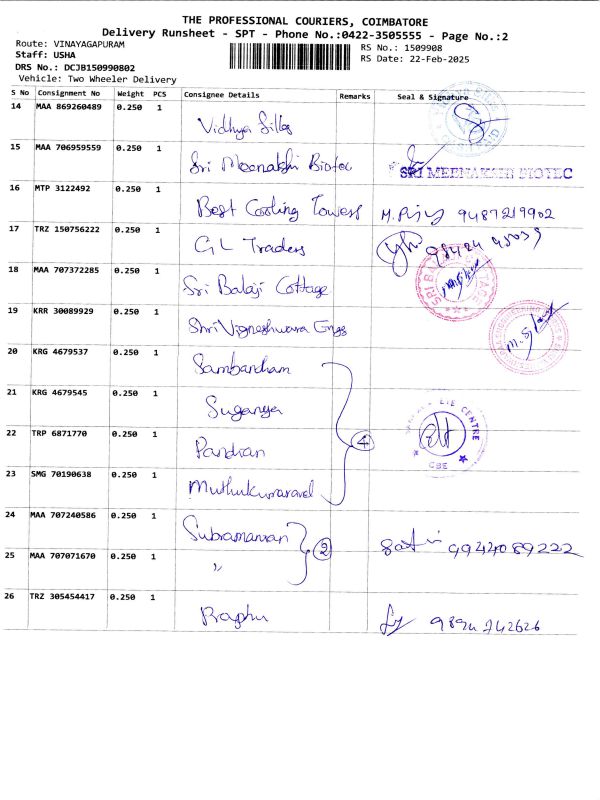 THE PROFESSIONAL COURIERS, COIMBATORE
Delivery Runsheet - SPT - Phone No.:0422-3505555 - Page No.:2
Route: VINAYAGAPURAM
Staff: USHA
DRS No.: DCJB150990802
Vehicle: Two Wheeler Delivery
RS No.: 1509908
RS Date: 22-Feb-2025
S No Consignment No Weight PCS Consignee Details Remarks Seal & Signature
14 MAA 869260489 0.250 1 Vidhya Silks
15 MAA 706959559 0.250 1 Sri Meenakshi Biotec SRI MEENAKSHI BIOTEC
16 MTP 3122492 0.250 1 Best Cooling Towers 9487219902
17 TRZ 150756222 0.250 1 GL Traders
18 MAA 707372285 0.250 1 Sri Balaji Cottage SRI BALAJI COTTAGE
19 KRR 30089929 0.250 1 Shri Vigneshwara Engs
20 KRG 4679537 0.250 1 Sambandham
21 KRG 4679545 0.250 1 Suganya
22 TRP 6871770 0.250 1 Pandian 4 EYE CENTRE CBE
23 SMG 70190638 0.250 1 Muthukumaravel
24 MAA 707240586 0.250 1 Subramanian 2 9944089222
25 MAA 707071670 0.250 1 "
26 TRZ 305454417 0.250 1 Praphu 9894742626